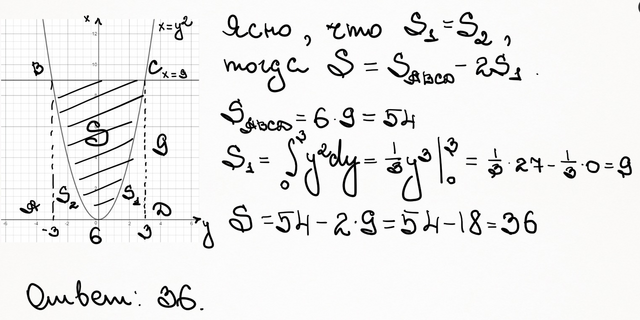 x
x=y²
B
C x=9
S
9
A
S₂
S₁
D
-3
6
3
y
Ясно, что S₁=S₂,
тогда S = S_ABCD - 2S₁.
S_ABCD = 6·9 = 54
S₁ = ∫₀³ y²dy = 1/3 y³ |₀³ = 1/3·27 - 1/3·0 = 9
S = 54 - 2·9 = 54 - 18 = 36
Ответ: 36.